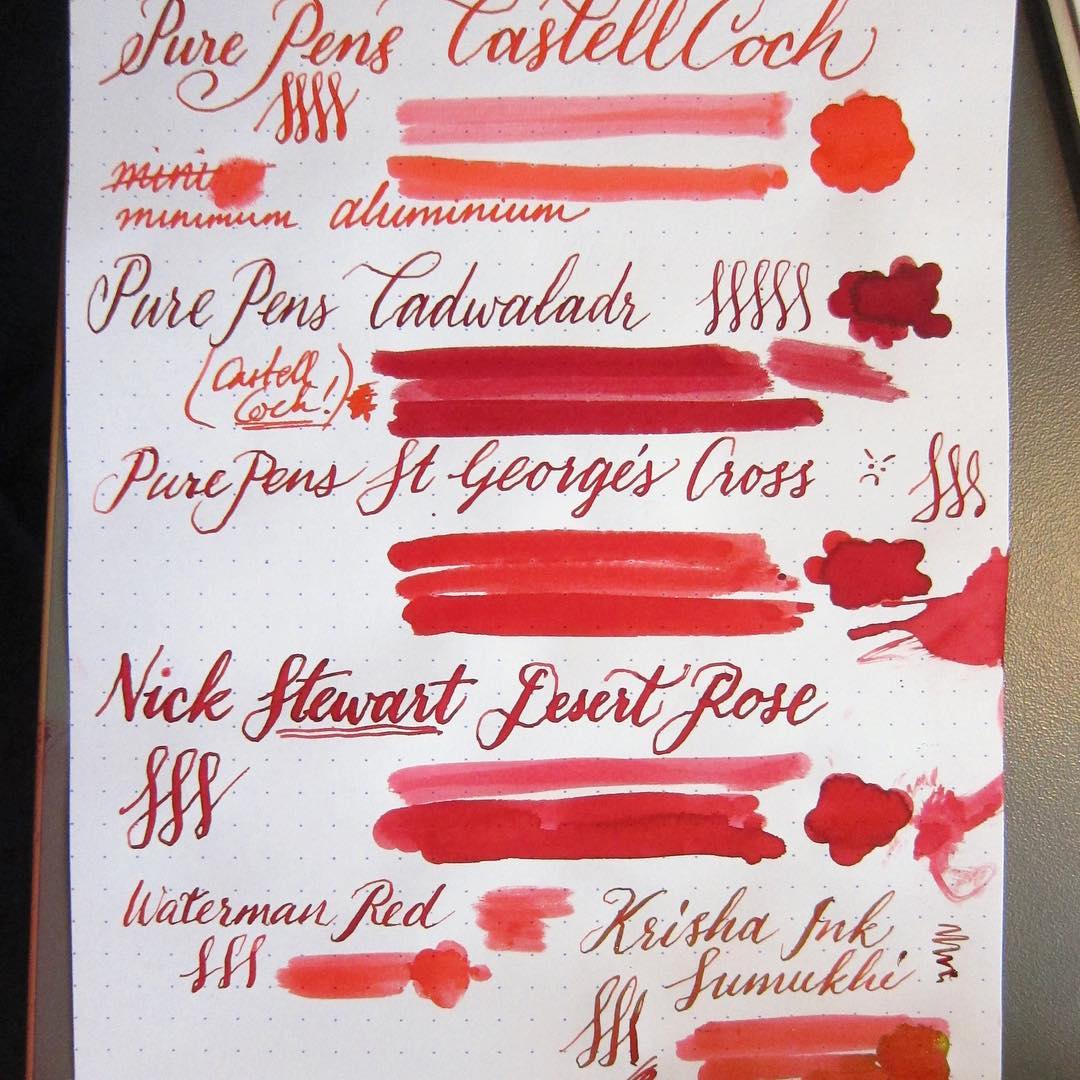 Pure Pens Castell Coch
mini
minimum aluminium
Pure Pens Cadwaladr
(Castell
Coch!)
Pure Pens St George's Cross
Nick Stewart Desert Rose
Waterman Red
Krisha Ink
Sumukhi